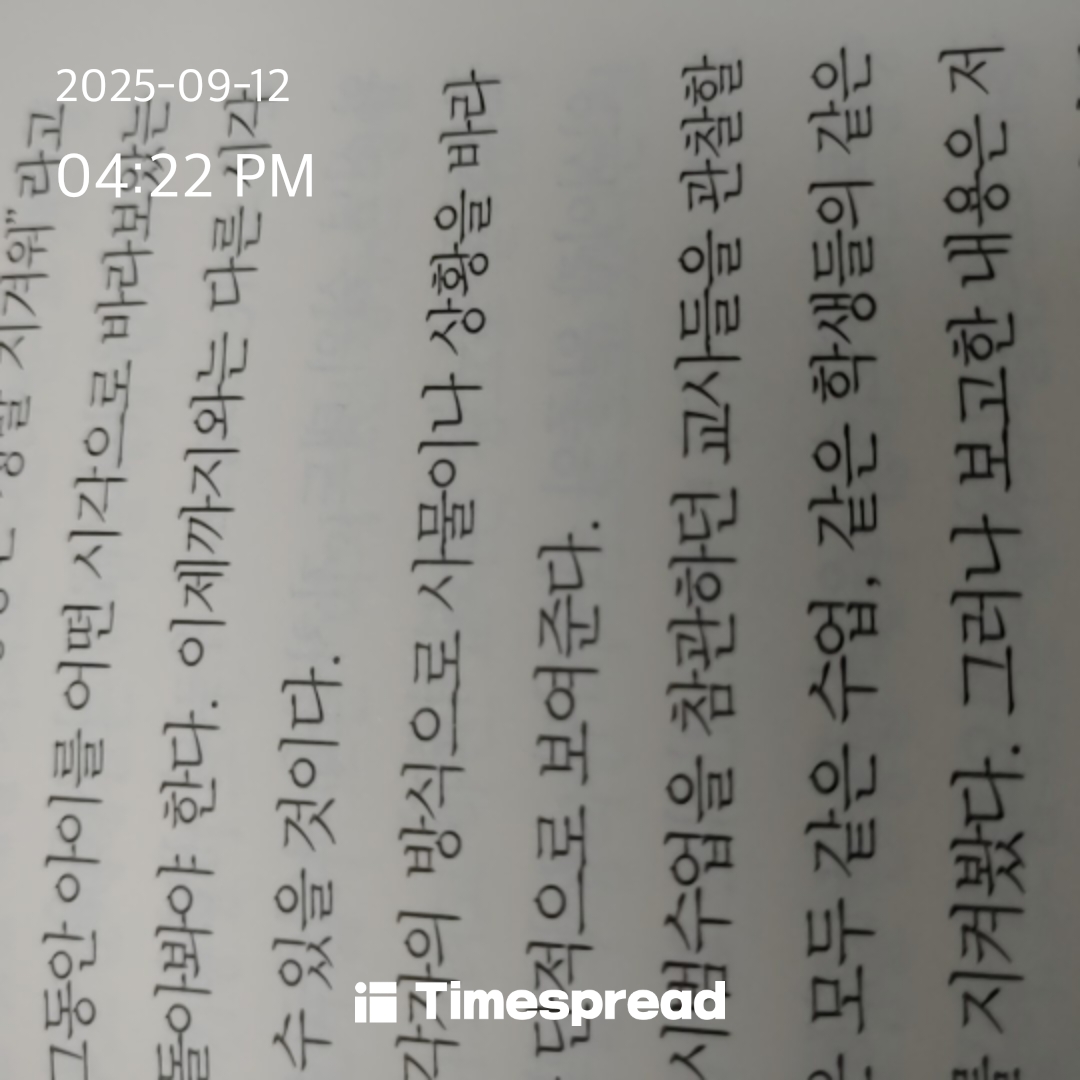 2025-09-12
04:22 PM
지겨워” 라고
그동안 아이를 어떤 시각으로 바라보았는
돌아봐야 한다. 이제까지와는 다른 시각
수 있을 것이다.
각자의 방식으로 사물이나 상황을 바라
단적으로 보여준다.
시범수업을 참관하던 교사들을 관찰할
모두 같은 수업, 같은 학생들의 같은
를 지켜봤다. 그러나 보고한 내용은 저
Timespread